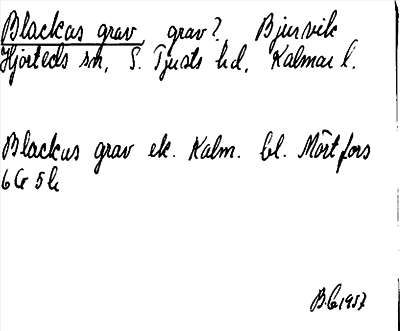 Blackus grav, grav?, Bjurvik
Hjorteds sn, S. Tjusts hd, Kalmar l.
Blackus grav ek. Kalm. bl. Mörtfors
6G 5h
1957